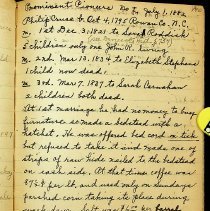 Prominent Pioneers No 2, July 1, 1882
Philip Cruse b. Oct 4, 1795 Rowan Co. N.C.
m. 1st Dec. 31, 1821 to Sarah Reddick
5 children only one John R. living
m. 2nd. Nov 13, 1834 to Elizabeth Stephens
1 child now dead.
m. 3rd. Nov 7, 1839 to Sarah Carnahan
2 children both dead.
At 1st marriage he had no money to buy
furniture so made a bedstead with a
hatchet. He was offered bed cord on tick
but refused to take it and made one of
strips of raw hide nailed to the bedstead
on each side. At that time coffee was
37½¢ per lb. and used only on Sundays
parched corn taking its place during